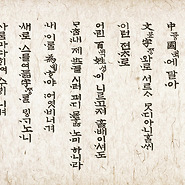 中듕國귁에 달아
文문字ᄍᆞᆼ와로 서르 ᄉᆞᄆᆞᆺ디 아니ᄒᆞᆯᄊᆡ
이런 젼ᄎᆞ로
어린 百ᄇᆡᆨ姓셔ᇰ이 니르고져 호ᇙ배이셔도
ᄆᆞᄎᆞᆷ내 제 ᄠᅳ들 시러 펴디 몯ᄒᆞᇙ 노미 하니라
내 이ᄅᆞᆯ 爲윙ᄒᆞ야 어엿비너겨
새로 스믈여듧字ᄍᆞᆼᄅᆞᆯ ᄆᆡᇰᄀᆞ노니
사ᄅᆞᆷ마다 ᄒᆡᅇᅧ